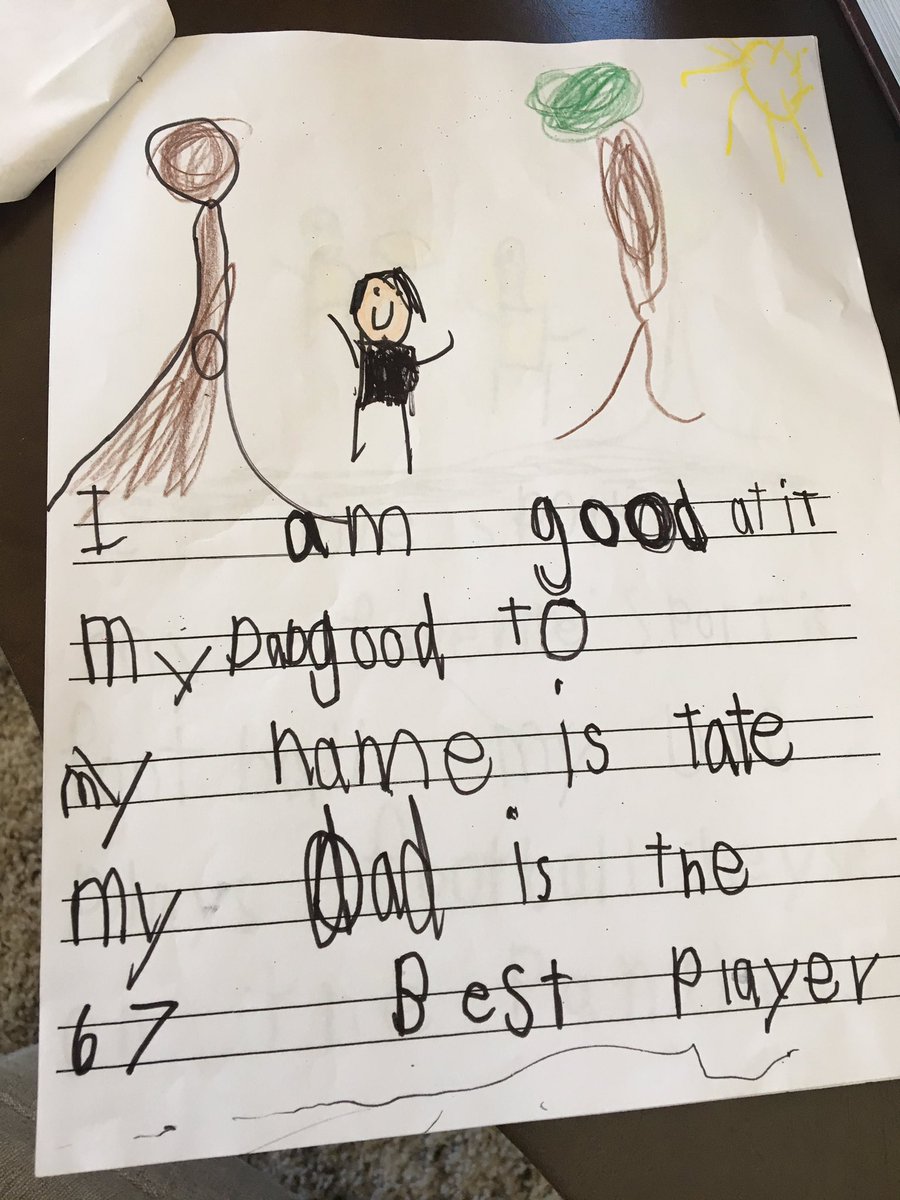 I am good at it
my Dad good to
my name is tate
my Dad is the
67 Best Player